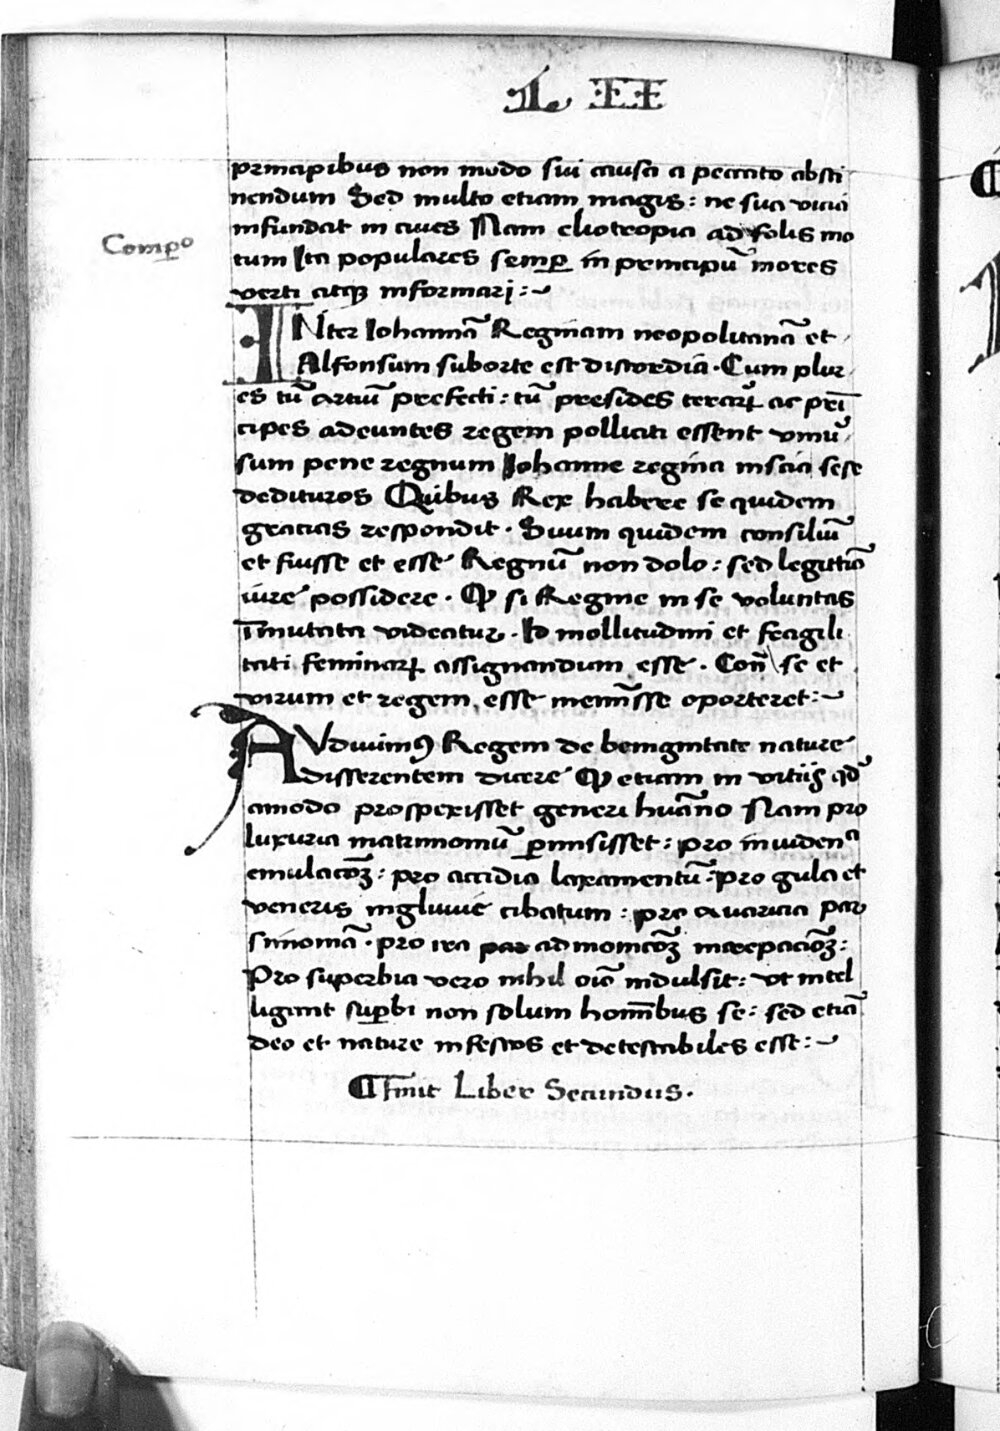 L II
principibus non modo sui causa a peccato absti
nendum Sed multo etiam magis: ne sua vicia
infundat in cives Nam eliotropia ad solis mo
Comp̱o
tum Ita populares semꝑ in principũ mores
verti atqꝫ informari:~
INter Iohannã Reginam neopolitanã et
Alfonsum suborte est discordia. Cum plur
es tũ artiũ prefecti: tũ presides terrarꝝ ac prĩ
cipes adeuntes regem polliciti essent vniuꝰ
sum pene regnum Iohanne regina inscia sese
dedituros Quibus Rex habere se quidem
gracias respondit. Suum quidem consiliũ
et fuisse et esse Regnũ non dolo: sed legitiõ
iure possidere. Qꝫ si Regine in se voluntas
ĩmutata videatur. Id mollitudini et fragili
tati feminarꝝ assignandum esse. Coñ se et
virum et regem esse memĩsse oporteret:~
AVdiuimꝰ Regem de benignitate nature
disserentem dicere Qꝫ etiam in vitiis qđ
amodo prospexisset generi huãno Nam pro
luxuria matrimoniũ ꝑmisisset: pro inuiden
emulacõꝫ: pro accidia laxamentũ: pro gula et
veneris ingluuie cibatum: pro avaricia par
simoniã. pro ira par admonicõꝫ increpaciõꝫ:
Pro superbia vero nihil oĩo indulsit: vt intel
ligint suꝑbi non solum homĩbus se: sed etiã
deo et nature infestos et detestabiles esse:~
Finit Liber Secundus.